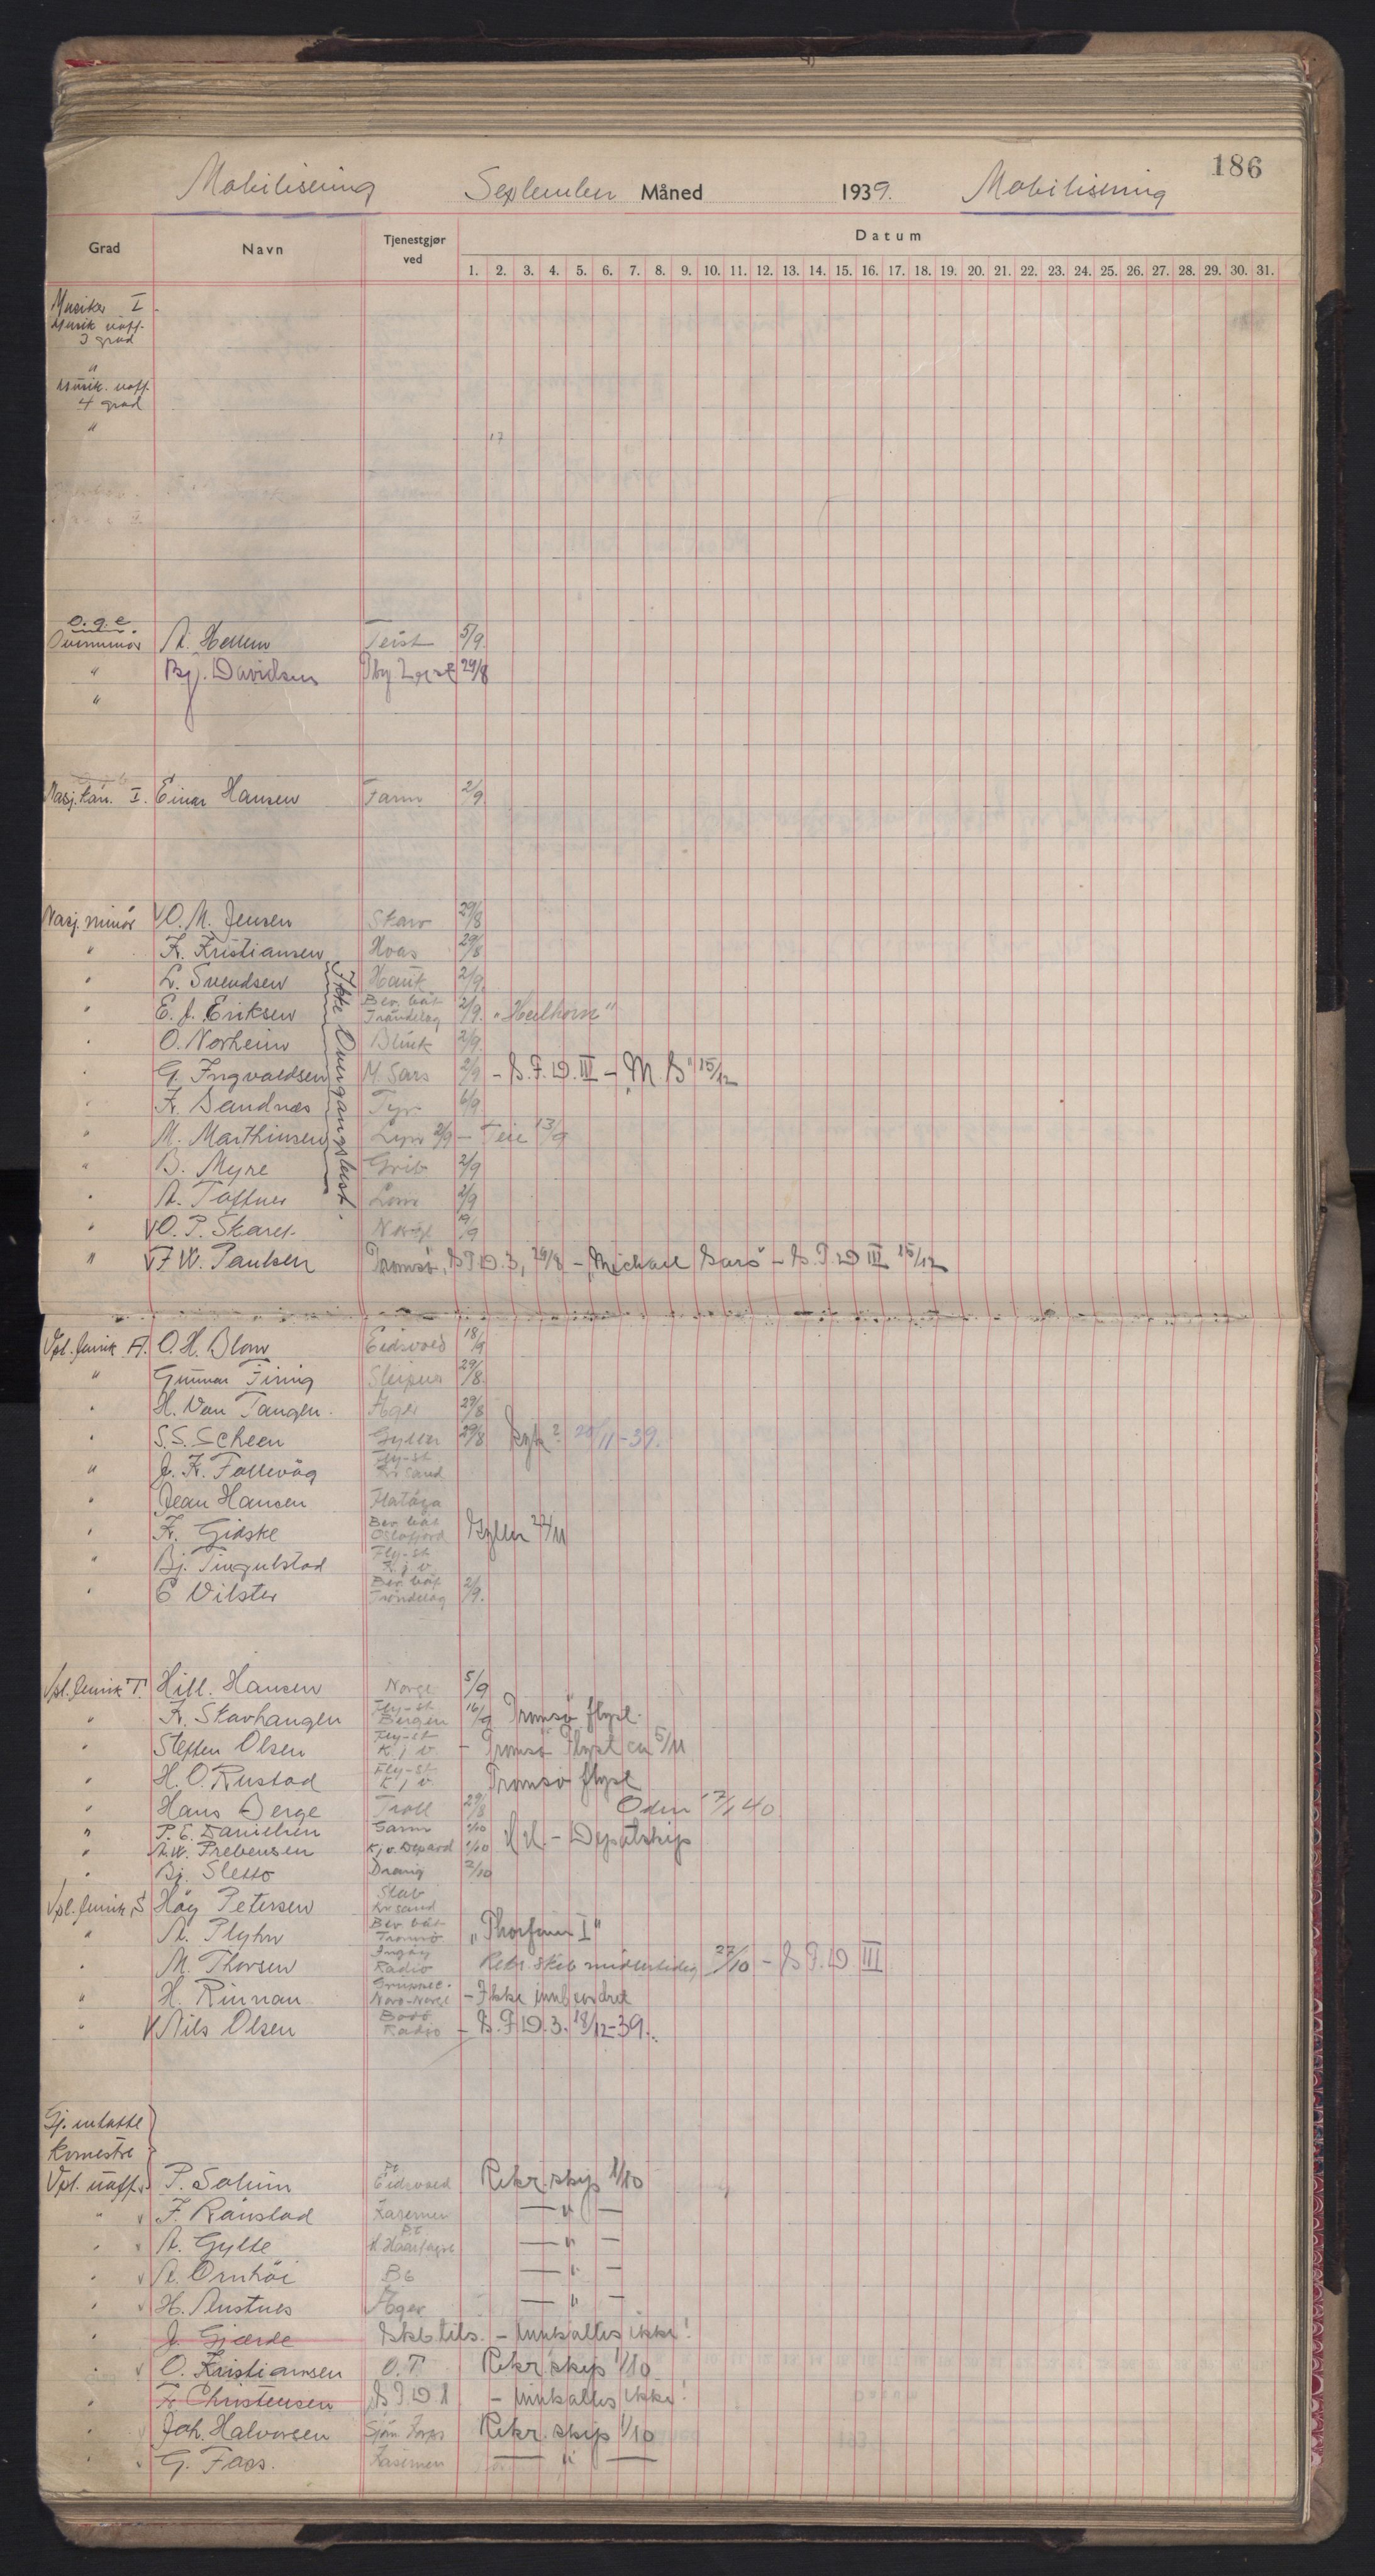 186
Mobilisering September Måned 1939. Mobilisering
Grad Navn Tjenestgjør ved Datum
1. 2. 3. 4. 5. 6. 7. 8. 9. 10. 11. 12. 13. 14. 15. 16. 17. 18. 19. 20. 21. 22. 23. 24. 25. 26. 27. 28. 29. 30. 31.
Musiker I
Musik uoff.
3 grad
"
Musik. uoff.
4 grad
"
17
O. g. e.
Overminør A. Hellem Teist 5/9.
" Bj. Davidsen 29/8
"
Masj. kan. I. Einar Hansen Farm 2/9.
Masj. minør O. M. Jensen Skarv 29/8
" K. Kristiansen Hvas 29/8
" L. Svendsen Hauk 2/9.
" E. J. Eriksen Bev. båt Trøndelag 2/9. "Heilhorn"
" O. Norheim Blink 2/9.
" G. Ingvaldsen M. Sars 2/9 - S.F.D. III - "M S" 15/12
" K. Sandnes Tyr 6/9.
" M. Marthinsen Lyn 2/9 - Teie 13/9
" B. Myre Grib 2/9
" A. Toftner Lom 2/9
" V O. P. Skaret Norge 19/9
" V F W. Paulsen Tromsø, S F D. 3, 29/8 - "Michael Sars" - S. F. D III 15/12
Ikke Overgangsbest.
Vpl. fenrik A. O. H. Blom Eidsvold 18/9
" Gunnar Tiring Sleipner 29/8.
" H. Von Tangen. Æger 29/8
" S. S. Scheen Gyller 29/8 syk? 20/11-39.
" J. K. Follevåg Fly-st Kr sand
" Jean Hansen Flatøya
" K. Gidske Bev. båt Oslofjord Gyller 22/11
" Bj. Tingulstad Fly-st K. j. v.
" E Vilster Bev. båt Trøndelag 2/9.
Vpl. fenrik T. Hill. Hansen Norge 5/9
" K. Skavhaugen Fly-st Bergen 16/9 Tromsø flyst.
" Steffen Olsen Fly-st K. j v. - Tromsø Flyst ca 5/11
" H. O. Rustad Fly-st K j v. Tromsø flyst
" Hans Berge Troll 29/8 Odin 17/1 40
" P. E. Danielsen Garm 1/10
" A. W. Prebensen K j v. Depard 1/10 H H. - Depotskip
" Bj. Sletto Draug 2/10
Vpl. fenrik, S Høy Petersen Stab Kr sand
" A. Plyhn Bev. båt Tromsø "Thorfinn I"
" M. Thorsen Ingøy Radio Rekr. skib midlertidig 27/10 - S F. D III
" H. Rinnan Gruppec. Nord-Norge - Ikke innbeordret
" V Nils Olsen Bodø Radio - S. F D. 3. 18/12-39.
Gj. inntatte
kvmestre
Vpl. uoff. P. Solum Eidsvold Rekr. skip 1/10
" F. Rånstad Kasernen — " —
" A. Gylte H. Haarfagre — " —
" A. Ørnhøi B6 — " —
" H. Austnes Æger — " —
" J. Gjærde Skb tils. - Innkalles ikke!
" O. Kristiansen O. T. Rekr. skip 1/10.
" K. Christensen S F D 1 - Innkalles ikke!
" Joh. Halvorsen Sjøm. Korps Rekr. skip 1/10
" G. Faos. Kasernen — " —